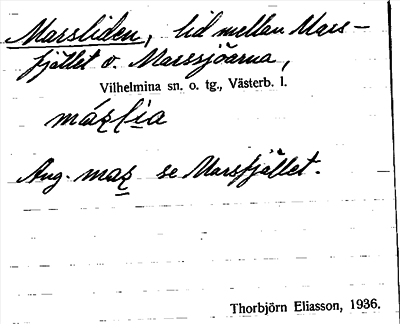 Marsliden, lid mellan Mars-
fjället o. Marssjöarna,
Vilhelmina sn. o. tg., Västerb. l.
Ang. se Marsfjället.
Thorbjörn Eliasson, 1936.